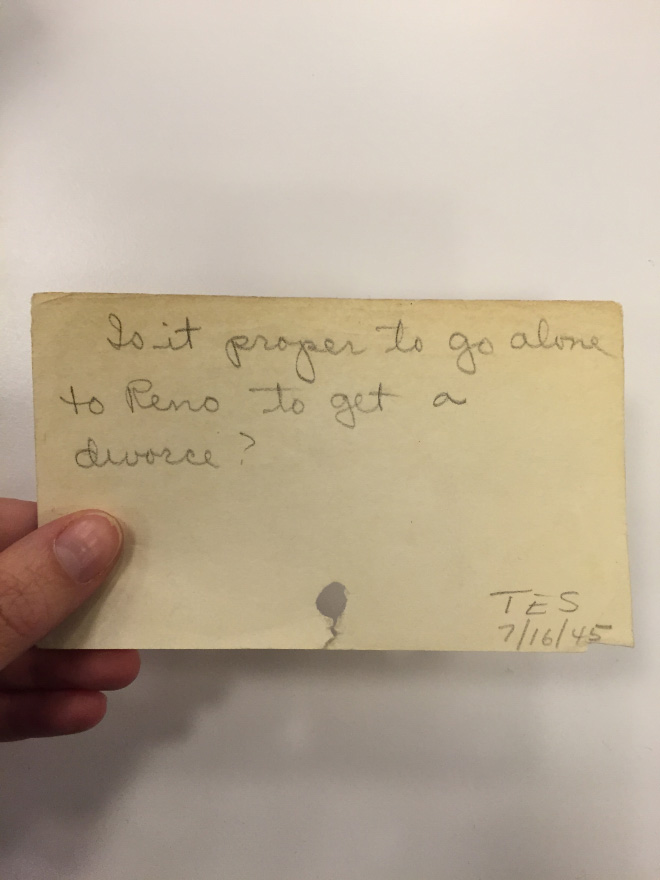 Is it proper to go alone
to Reno to get a
divorce?
TES
7/16/45